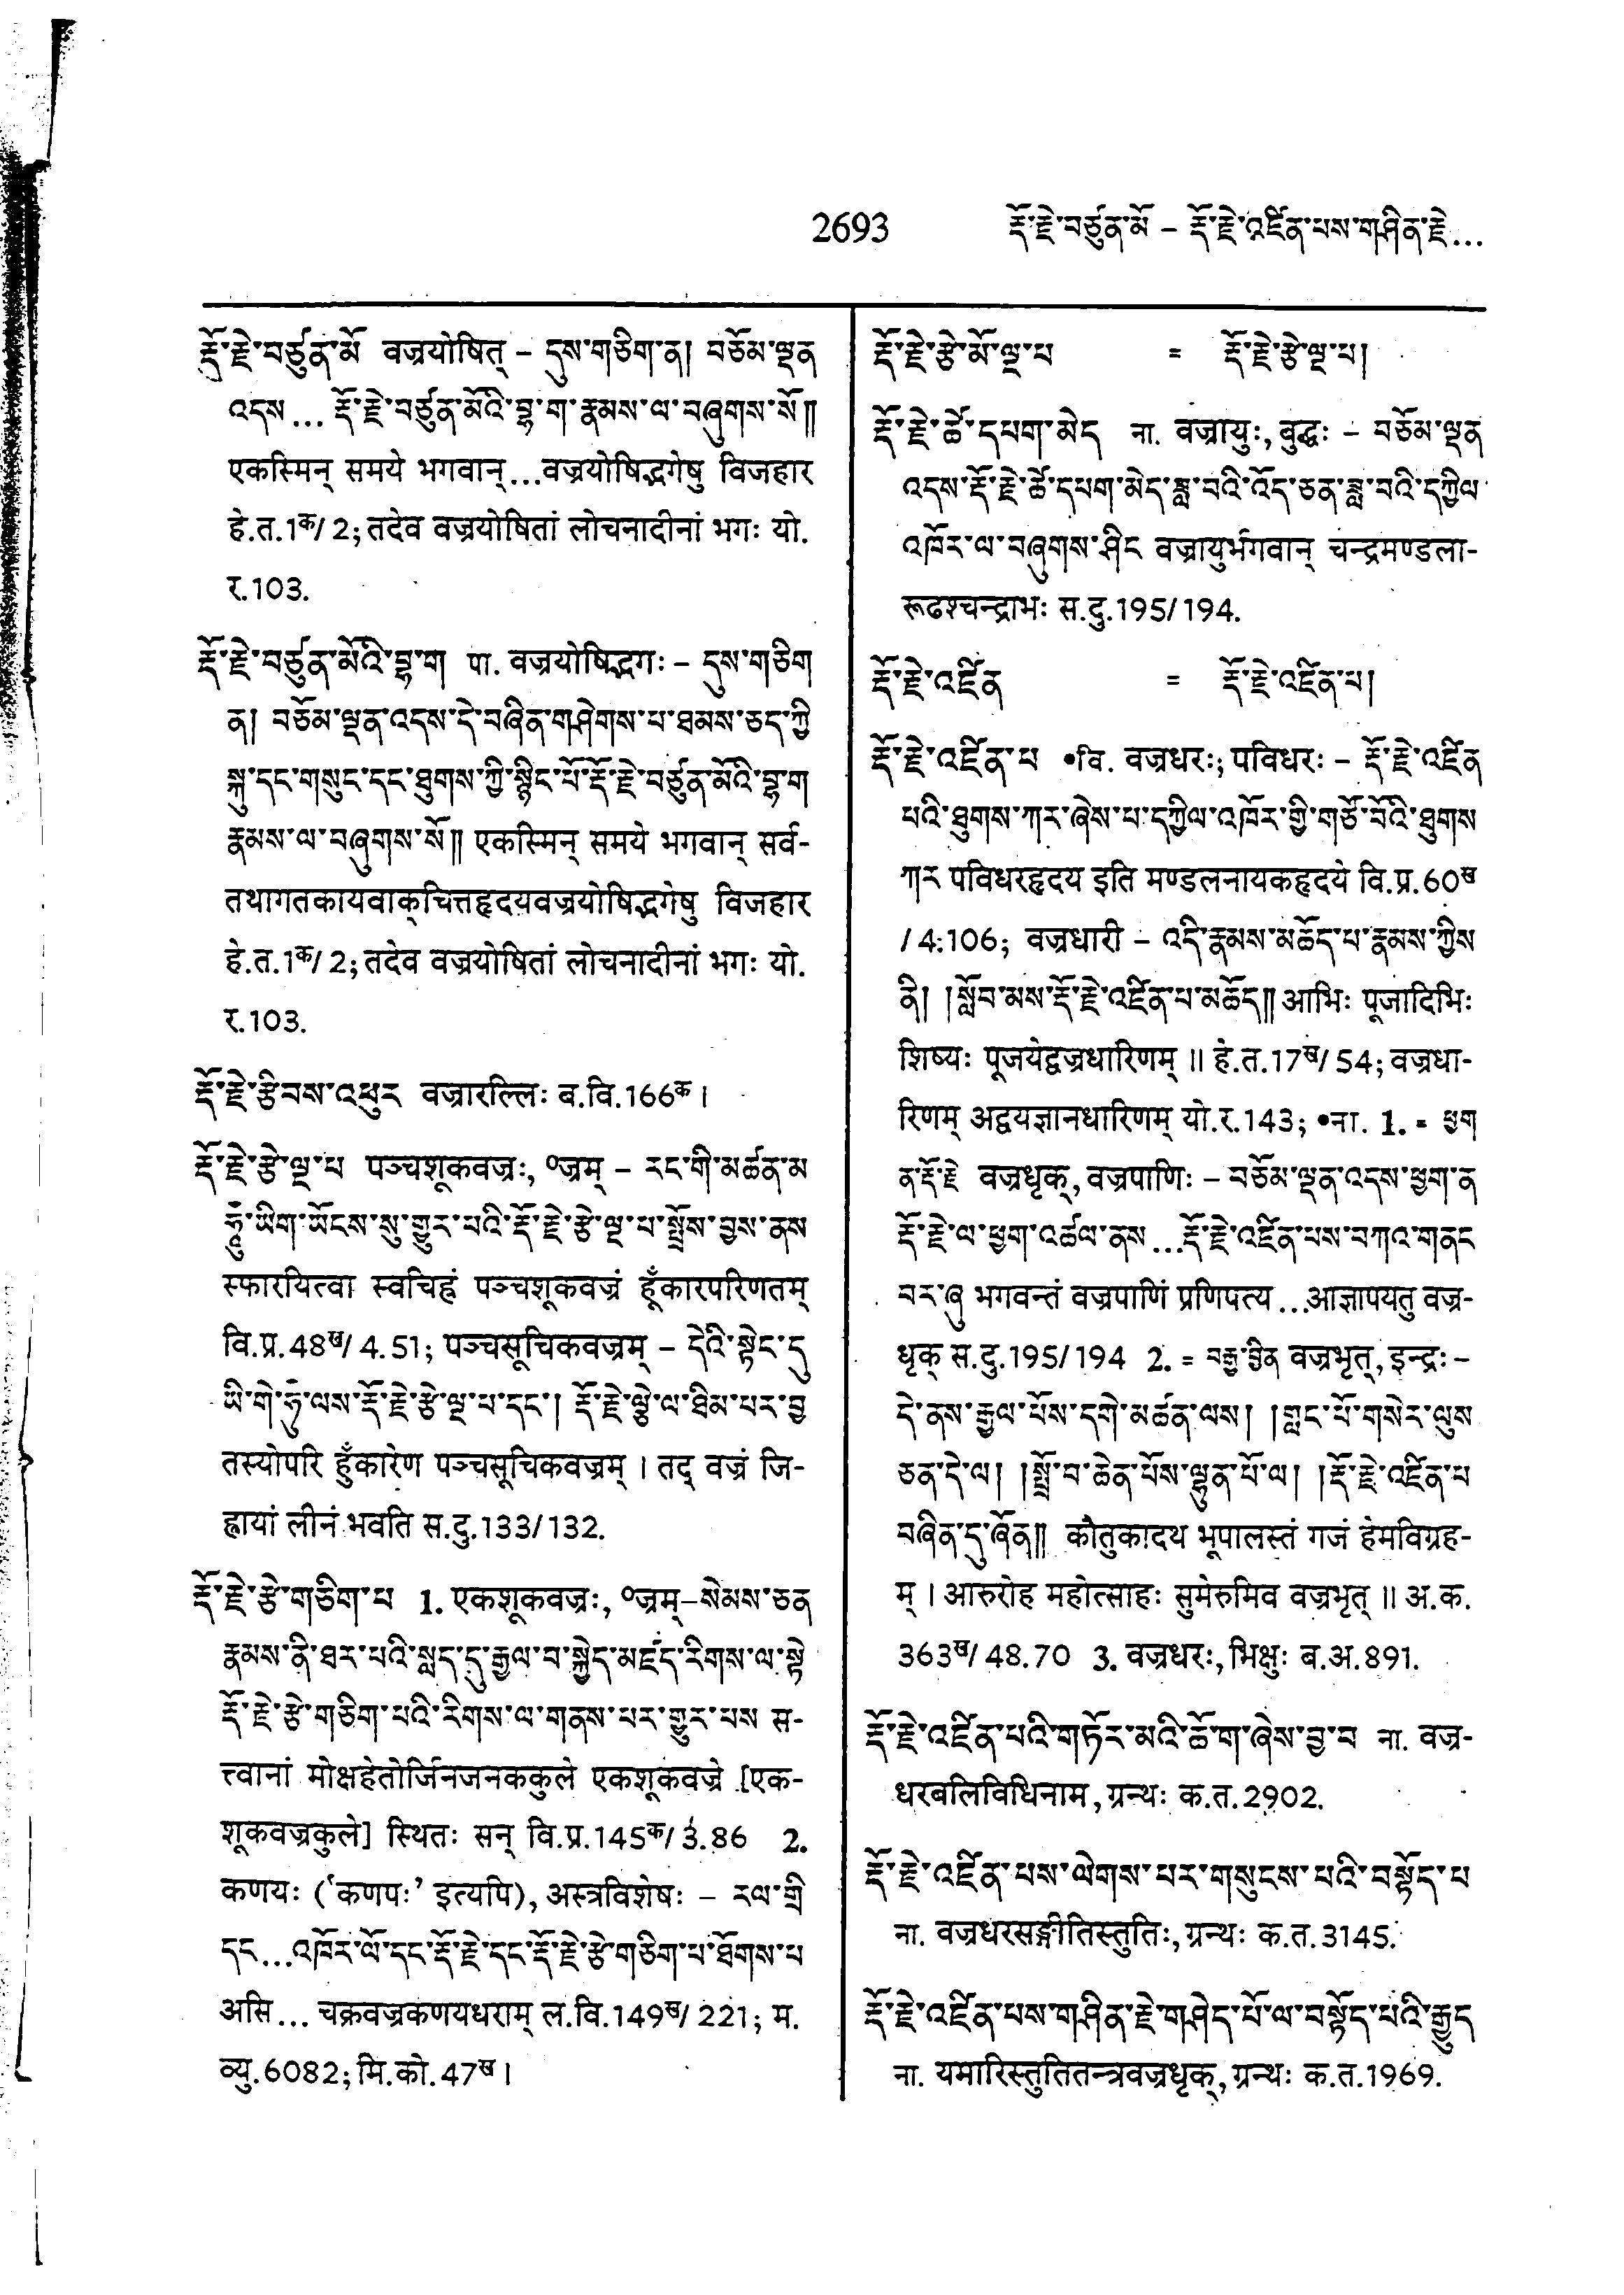 2693
རྡོ་རྗེ་བཙུན་མོ – རྡོ་རྗེ་འཛིན་པས་གཤིན་རྗེ...
རྡོ་རྗེ་བཙུན་མོ वज्रयोषित् – དུས་གཅིག་ན། བཅོམ་ལྡན
འདས... རྡོ་རྗེ་བཙུན་མོའི་བྷ་ག་རྣམས་ལ་བཞུགས་སོ॥
एकस्मिन् समये भगवान्...वज्रयोषिद्भगेषु विजहार
हे.त.1क/2; तदेव वज्रयोषितां लोचनादीनां भगः यो.
र.103.
རྡོ་རྗེ་བཙུན་མོའི་བྷ་ག पा. वज्रयोषिद्भगः – དུས་གཅིག
ན། བཅོམ་ལྡན་འདས་དེ་བཞིན་གཤེགས་པ་ཐམས་ཅད་ཀྱི
སྐུ་དང་གསུང་དང་ཐུགས་ཀྱི་སྙིང་པོ་རྡོ་རྗེ་བཙུན་མོའི་བྷ་ག
རྣམས་ལ་བཞུགས་སོ॥ एकस्मिन् समये भगवान् सर्व-
तथागतकायवाक्चित्तहृदयवज्रयोषिद्भगेषु विजहार
हे.त.1क/2; तदेव वज्रयोषितां लोचनादीनां भगः यो.
र.103.
རྡོ་རྗེ་རྩིབས་འཕུར वज्रारल्लिः ब.वि.166क।
རྡོ་རྗེ་རྩེ་ལྔ་པ पञ्चशूकवज्रः, ०ज्रम् – རང་གི་མཚན་མ
ཧཱུྃ་ཡིག་ཡོངས་སུ་གྱུར་པའི་རྡོ་རྗེ་རྩེ་ལྔ་པ་སྤྲོས་བྱས་ནས
स्फारयित्वा स्वचिह्नं पञ्चशूकवज्रं हूँकारपरिणतम्
वि.प्र.48ख/4.51; पञ्चसूचिकवज्रम् – དེའི་སྟེང་དུ
ཡི་གེ་ཧུྃ་ལས་རྡོ་རྗེ་རྩེ་ལྔ་པ་དང་། རྡོ་རྗེ་ལྕེ་ལ་ཐིམ་པར་བྱ
तस्योपरि हुँकारेण पञ्चसूचिकवज्रम् । तद् वज्रं जि-
ह्वायां लीनं भवति स.दु.133/132.
རྡོ་རྗེ་རྩེ་གཅིག་པ 1. एकशूकवज्रः, ०ज्रम्–སེམས་ཅན
རྣམས་ནི་ཐར་པའི་སླད་དུ་རྒྱལ་བ་སྐྱེད་མཛད་རིགས་ལ་སྟེ
རྡོ་རྗེ་རྩེ་གཅིག་པའི་རིགས་ལ་གནས་པར་གྱུར་པས स-
त्त्वानां मोक्षहेतोर्जिनजनककुले एकशूकवज्रे [एक-
शूकवज्रकुले] स्थितः सन् वि.प्र.145क/3.86 2.
कणयः ('कणपः' इत्यपि), अस्त्रविशेषः – རལ་གྲི
དང...འཁོར་ལོ་དང་རྡོ་རྗེ་དང་རྡོ་རྗེ་རྩེ་གཅིག་པ་ཐོགས་པ
असि... चक्रवज्रकणयधराम् ल.वि.149ख/221; म.
व्यु.6082; मि.को.47ख।
རྡོ་རྗེ་རྩེ་མོ་ལྔ་པ = རྡོ་རྗེ་རྩེ་ལྔ་པ།
རྡོ་རྗེ་ཚེ་དཔག་མེད ना. वज्रायुः, बुद्धः – བཅོམ་ལྡན
འདས་རྡོ་རྗེ་ཚེ་དཔག་མེད་ཟླ་བའི་འོད་ཅན་ཟླ་བའི་དཀྱིལ
འཁོར་ལ་བཞུགས་ཤིང वज्रायुर्भगवान् चन्द्रमण्डला-
रूढश्चन्द्राभः स.दु.195/194.
རྡོ་རྗེ་འཛིན = རྡོ་རྗེ་འཛིན་པ།
རྡོ་རྗེ་འཛིན་པ •वि. वज्रधरः; पविधरः – རྡོ་རྗེ་འཛིན
པའི་ཐུགས་ཀར་ཞེས་པ་དཀྱིལ་འཁོར་གྱི་གཙོ་བོའི་ཐུགས
ཀར पविधरहृदय इति मण्डलनायकहृदये वि.प्र.60ख
/4.106; वज्रधारी – འདི་རྣམས་མཆོད་པ་རྣམས་ཀྱིས
ནི། །སློབ་མས་རྡོ་རྗེ་འཛིན་པ་མཆོད॥ आभिः पूजादिभिः
शिष्यः पूजयेद्वज्रधारिणम् ॥ हे.त.17ख/54; वज्रधा-
रिणम् अद्वयज्ञानधारिणम् यो.र.143; •ना. 1. = ཕྱག
ན་རྡོ་རྗེ वज्रधृक्, वज्रपाणिः – བཅོམ་ལྡན་འདས་ཕྱག་ན
རྡོ་རྗེ་ལ་ཕྱག་འཚལ་ནས...རྡོ་རྗེ་འཛིན་པས་བཀའ་གནང
བར་ཞུ भगवन्तं वज्रपाणिं प्रणिपत्य...आज्ञापयतु वज्र-
धृक् स.दु.195/194 2. = བརྒྱ་བྱིན वज्रभृत्, इन्द्रः –
དེ་ནས་རྒྱལ་པོས་དགེ་མཚན་ལས། །གླང་པོ་གསེར་ལུས
ཅན་དེ་ལ། །སྤྲོ་བ་ཆེན་པོས་ལྷུན་པོ་ལ། །རྡོ་རྗེ་འཛིན་པ
བཞིན་དུ་ཞོན॥ कौतुकादथ भूपालस्तं गजं हेमविग्रह-
म् । आरुरोह महोत्साहः सुमेरुमिव वज्रभृत् ॥ अ.क.
363ख/48.70 3. वज्रधरः, भिक्षुः ब.अ.891.
རྡོ་རྗེ་འཛིན་པའི་གཏོར་མའི་ཆོ་ག་ཞེས་བྱ་བ ना. वज्र-
धरबलिविधिनाम, ग्रन्थः क.त.2902.
རྡོ་རྗེ་འཛིན་པས་ལེགས་པར་གསུངས་པའི་བསྟོད་པ
ना. वज्रधरसङ्गीतिस्तुतिः, ग्रन्थः क.त.3145.
རྡོ་རྗེ་འཛིན་པས་གཤིན་རྗེ་གཤེད་པོ་ལ་བསྟོད་པའི་རྒྱུད
ना. यमारिस्तुतितन्त्रवज्रधृक्, ग्रन्थः क.त.1969.